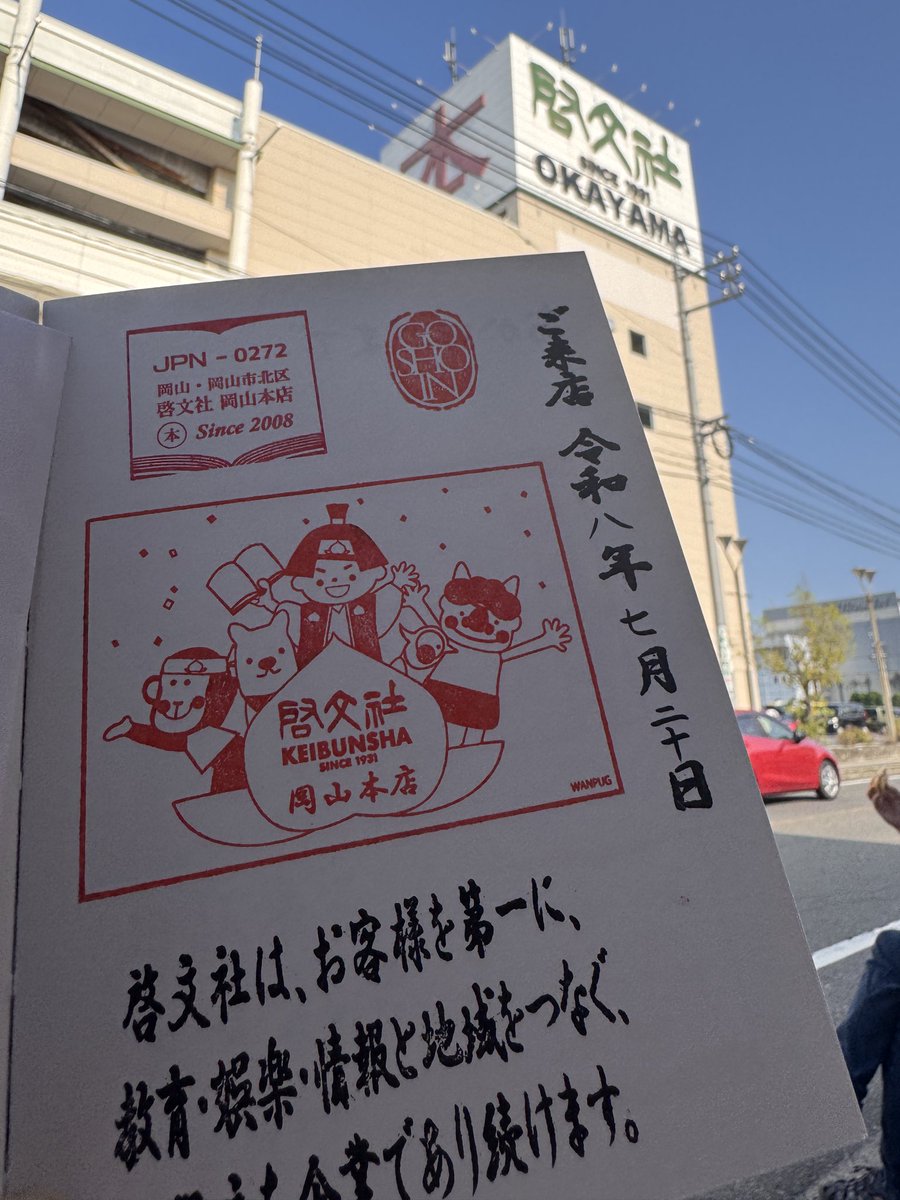 本
啓文社
SINCE 1931
OKAYAMA
JPN - 0272
岡山・岡山市北区
啓文社 岡山本店
本 Since 2008
GO
SHO
IN
ご来店 令和八年 七月二十日
啓文社
KEIBUNSHA
SINCE 1931
岡山本店
WANPUG
啓文社は、お客様を第一に、
教育・娯楽・情報と地域をつなぐ、
食堂であり続けます。